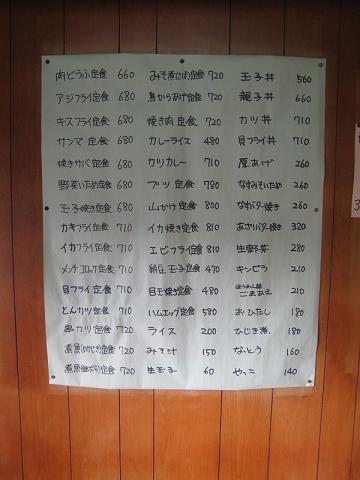 肉どうふ定食 660
アジフライ定食 680
キスフライ定食 680
サンマ 定食 680
焼きサバ定食 680
野菜いため定食 680
玉子焼き定食 680
カキフライ定食 710
イカフライ定食 710
メンチコロッケ定食 710
貝フライ定食 710
とんカツ定食 710
串カツ定食 720
煮魚 定食 720
煮魚 定食 720
みそ煮(さば)定食 720
鳥からあげ定食 720
焼き肉 定食 720
カレーライス 480
カツカレー 710
ブツ 定食 780
山かけ定食 800
イカ焼き定食 810
エビフライ定食 810
納豆玉子定食 470
目玉焼き定食 480
ハムエッグ定食 580
ライス 200
みそ汁 150
生玉子 60
玉子丼 560
親子丼 660
カツ丼 710
貝フライ丼 710
厚あげ 260
なすみそいため 260
なすバター焼き 260
あさりバター焼き 320
生野菜 280
キンピラ 210
ほうれん草ごまあえ 210
おひたし 180
ひじき煮 180
なっとう 160
やっこ 140